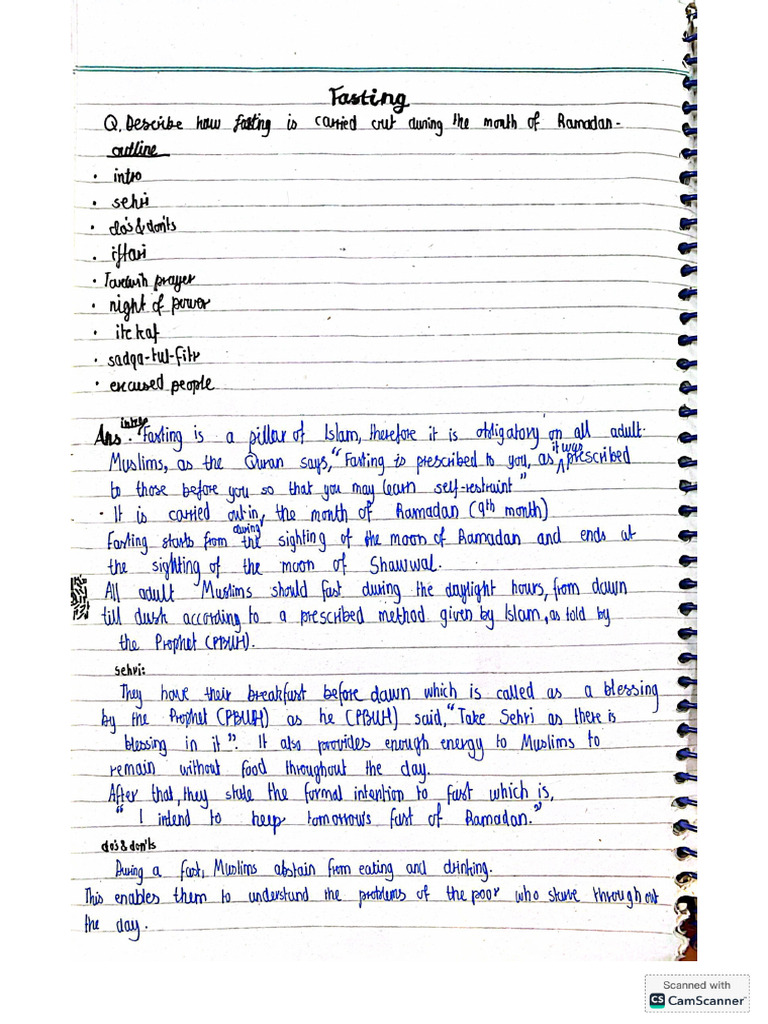 Fasting
Q. Describe how fasting is carried out during the month of Ramadan-
outline
• intro
• sehri
• do's & don'ts
• iftari
• Tarawih prayer
• night of power
• itekaf
• sadqa-tul-fitr
• excused people
intro
Ans. Fasting is a pillar of Islam, therefore it is obligatory on all adult
Muslims, as the Quran says, "Fasting is prescribed to you, as it was prescribed
to those before you so that you may learn self-restraint"
• It is carried out in, the month of Ramadan (9th month)
Fasting starts from during the sighting of the moon of Ramadan and ends at
the sighting of the moon of Shawwal.
All adult Muslims should fast during the daylight hours, from dawn
till dusk according to a prescribed method given by Islam, as told by
the Prophet (PBUH).
sehri:
They have their breakfast before dawn which is called as a blessing
by the Prophet (PBUH) as he (PBUH) said, "Take Sehri as there is
blessing in it". It also provides enough energy to Muslims to
remain without food throughout the day.
After that, they state the formal intention to fast which is,
"I intend to keep tomorrows fast of Ramadan."
do's & don'ts
During a fast, Muslims abstain from eating and drinking.
This enables them to understand the problems of the poor who starve through out
the day.
Scanned with
CS CamScanner